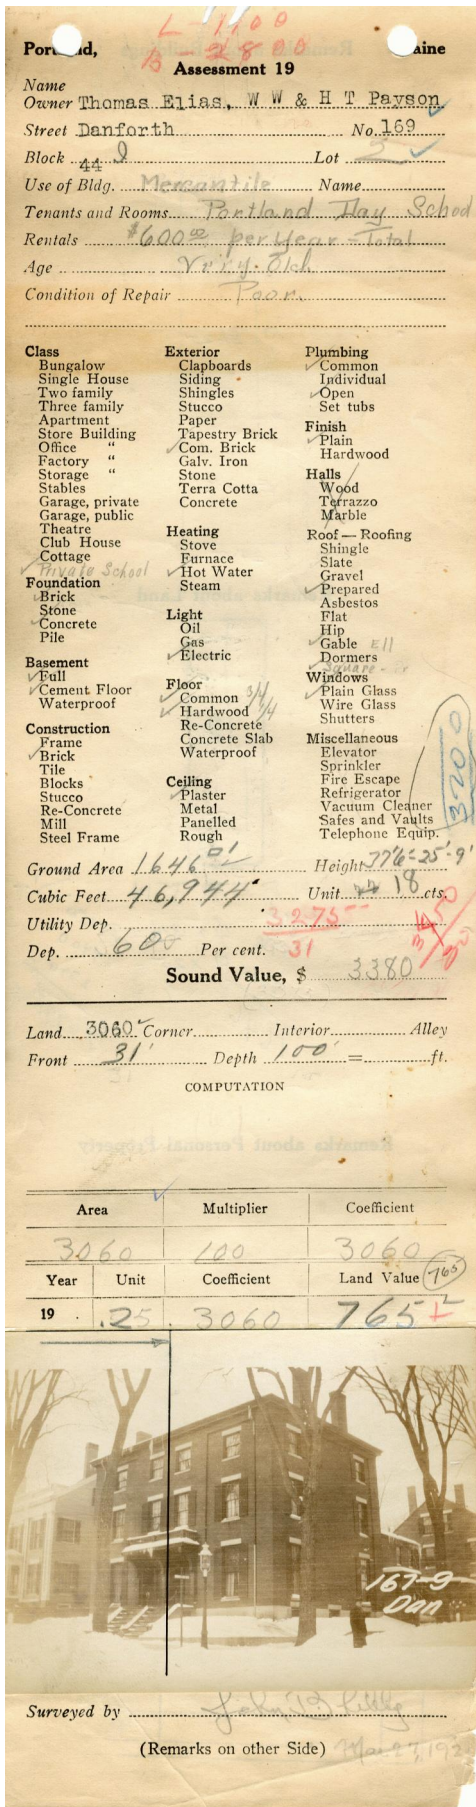 L-1100
B-2800
Portland, aine
Assessment 19
Name
Owner Thomas Elias, W W & H T Payson
Street Danforth No. 169
Block 44 Lot 2
Use of Bldg. Mercantile Name
Tenants and Rooms Portland Day School
Rentals $600.00 per year - Total
Age Very Old
Condition of Repair Poor.
Class
Bungalow
Single House
Two family
Three family
Apartment
Store Building
Office "
Factory "
Storage "
Stables
Garage, private
Garage, public
Theatre
Club House
Cottage
Private School
Foundation
Brick
Stone
Concrete
Pile
Basement
Full
Cement Floor
Waterproof
Construction
Frame
Brick
Tile
Blocks
Stucco
Re-Concrete
Mill
Steel Frame
Exterior
Clapboards
Siding
Shingles
Stucco
Paper
Tapestry Brick
Com. Brick
Galv. Iron
Stone
Terra Cotta
Concrete
Heating
Stove
Furnace
Hot Water
Steam
Light
Oil
Gas
Electric
Floor
Common 3/4
Hardwood 1/4
Re-Concrete
Concrete Slab
Waterproof
Ceiling
Plaster
Metal
Panelled
Rough
Plumbing
Common
Individual
Open
Set tubs
Finish
Plain
Hardwood
Halls
Wood
Terrazzo
Marble
Roof — Roofing
Shingle
Slate
Gravel
Prepared
Asbestos
Flat
Hip
Gable Ell
Dormers
Square
Windows
Plain Glass
Wire Glass
Shutters
Miscellaneous
Elevator
Sprinkler
Fire Escape
Refrigerator
Vacuum Cleaner
Safes and Vaults
Telephone Equip.
3200
Ground Area 1646 Height 37'6"-25'-9'
Cubic Feet 46,944 Unit 18 cts.
Utility Dep. 3275
Dep. 60 Per cent. 31
Sound Value, $ 3380
Land 3060 Corner Interior Alley
Front 31' Depth 100' = ft.
COMPUTATION
Area Multiplier Coefficient
3060 100 3060
Year Unit Coefficient Land Value 765
19 .25 3060 765
167-9
Dan
Surveyed by
(Remarks on other Side) Mar 27, 192